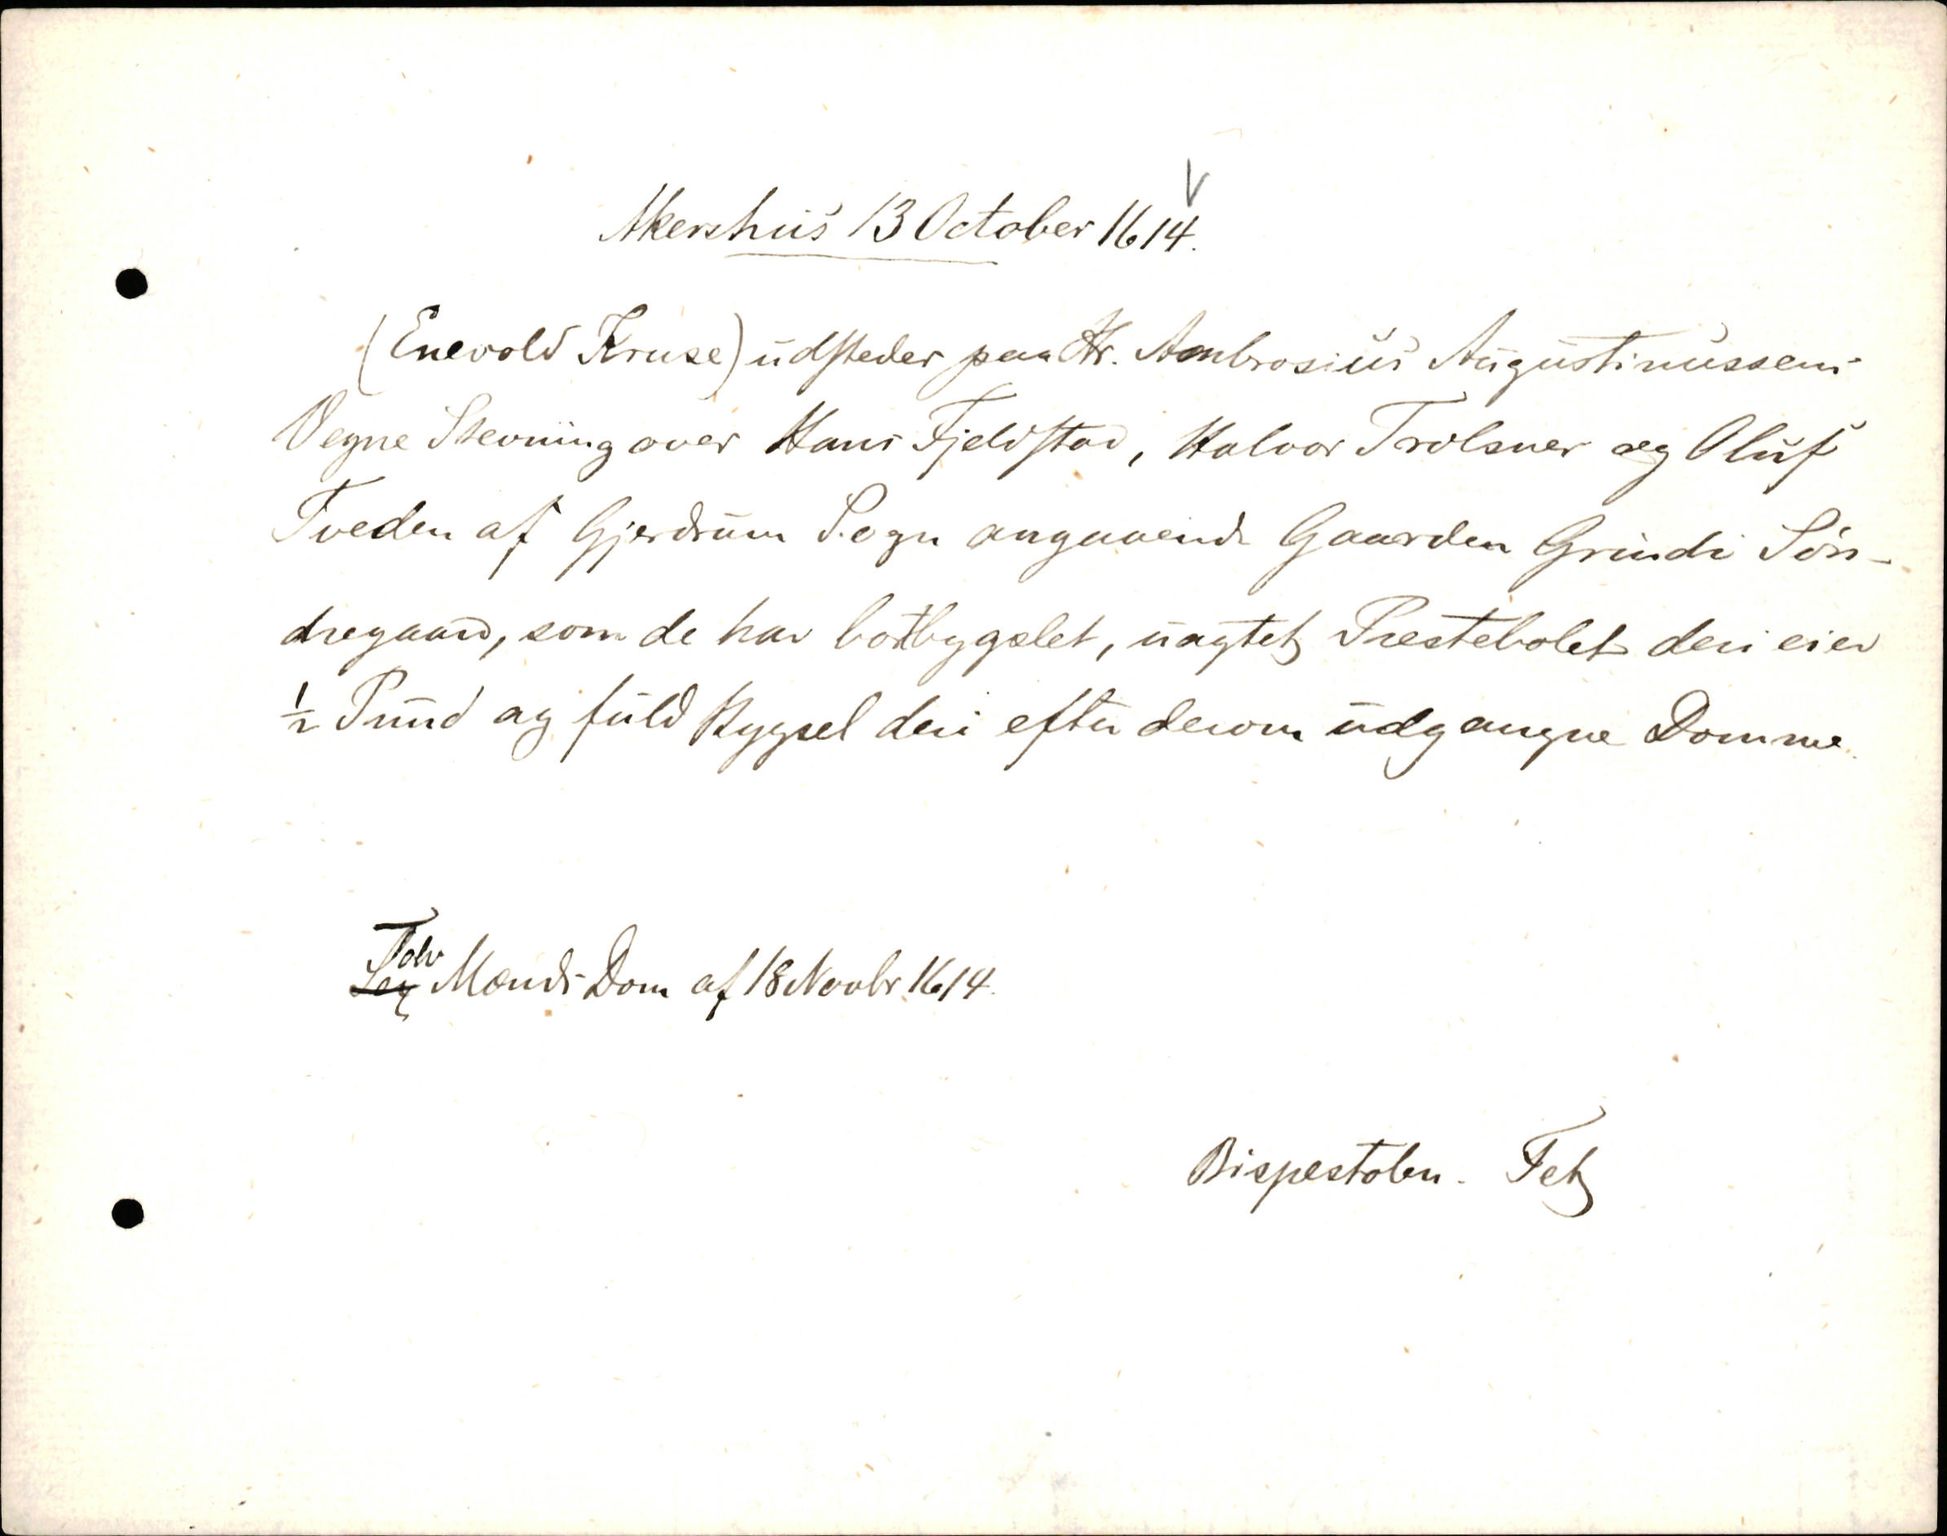 Akershus 13 October 1614.
(Enevold Kruse) udsteder paa Hr. Ambrosius Augustinussens
Vegne Stevning over Hans Fjeldstad, Halvor Trolsner og Oluf
Tveden af Gjerdrum Sogn angaaende Gaarden Grindi Sön-
dregaard, som de har bortbygslet, uagtet Prestebolet deri eier
½ Pund og fuld Bygsel deri efter derom udgangne Domme.
Tolv
Sex Mænds Dom af 18 Novbr 1614.
Bispestolen. Fet